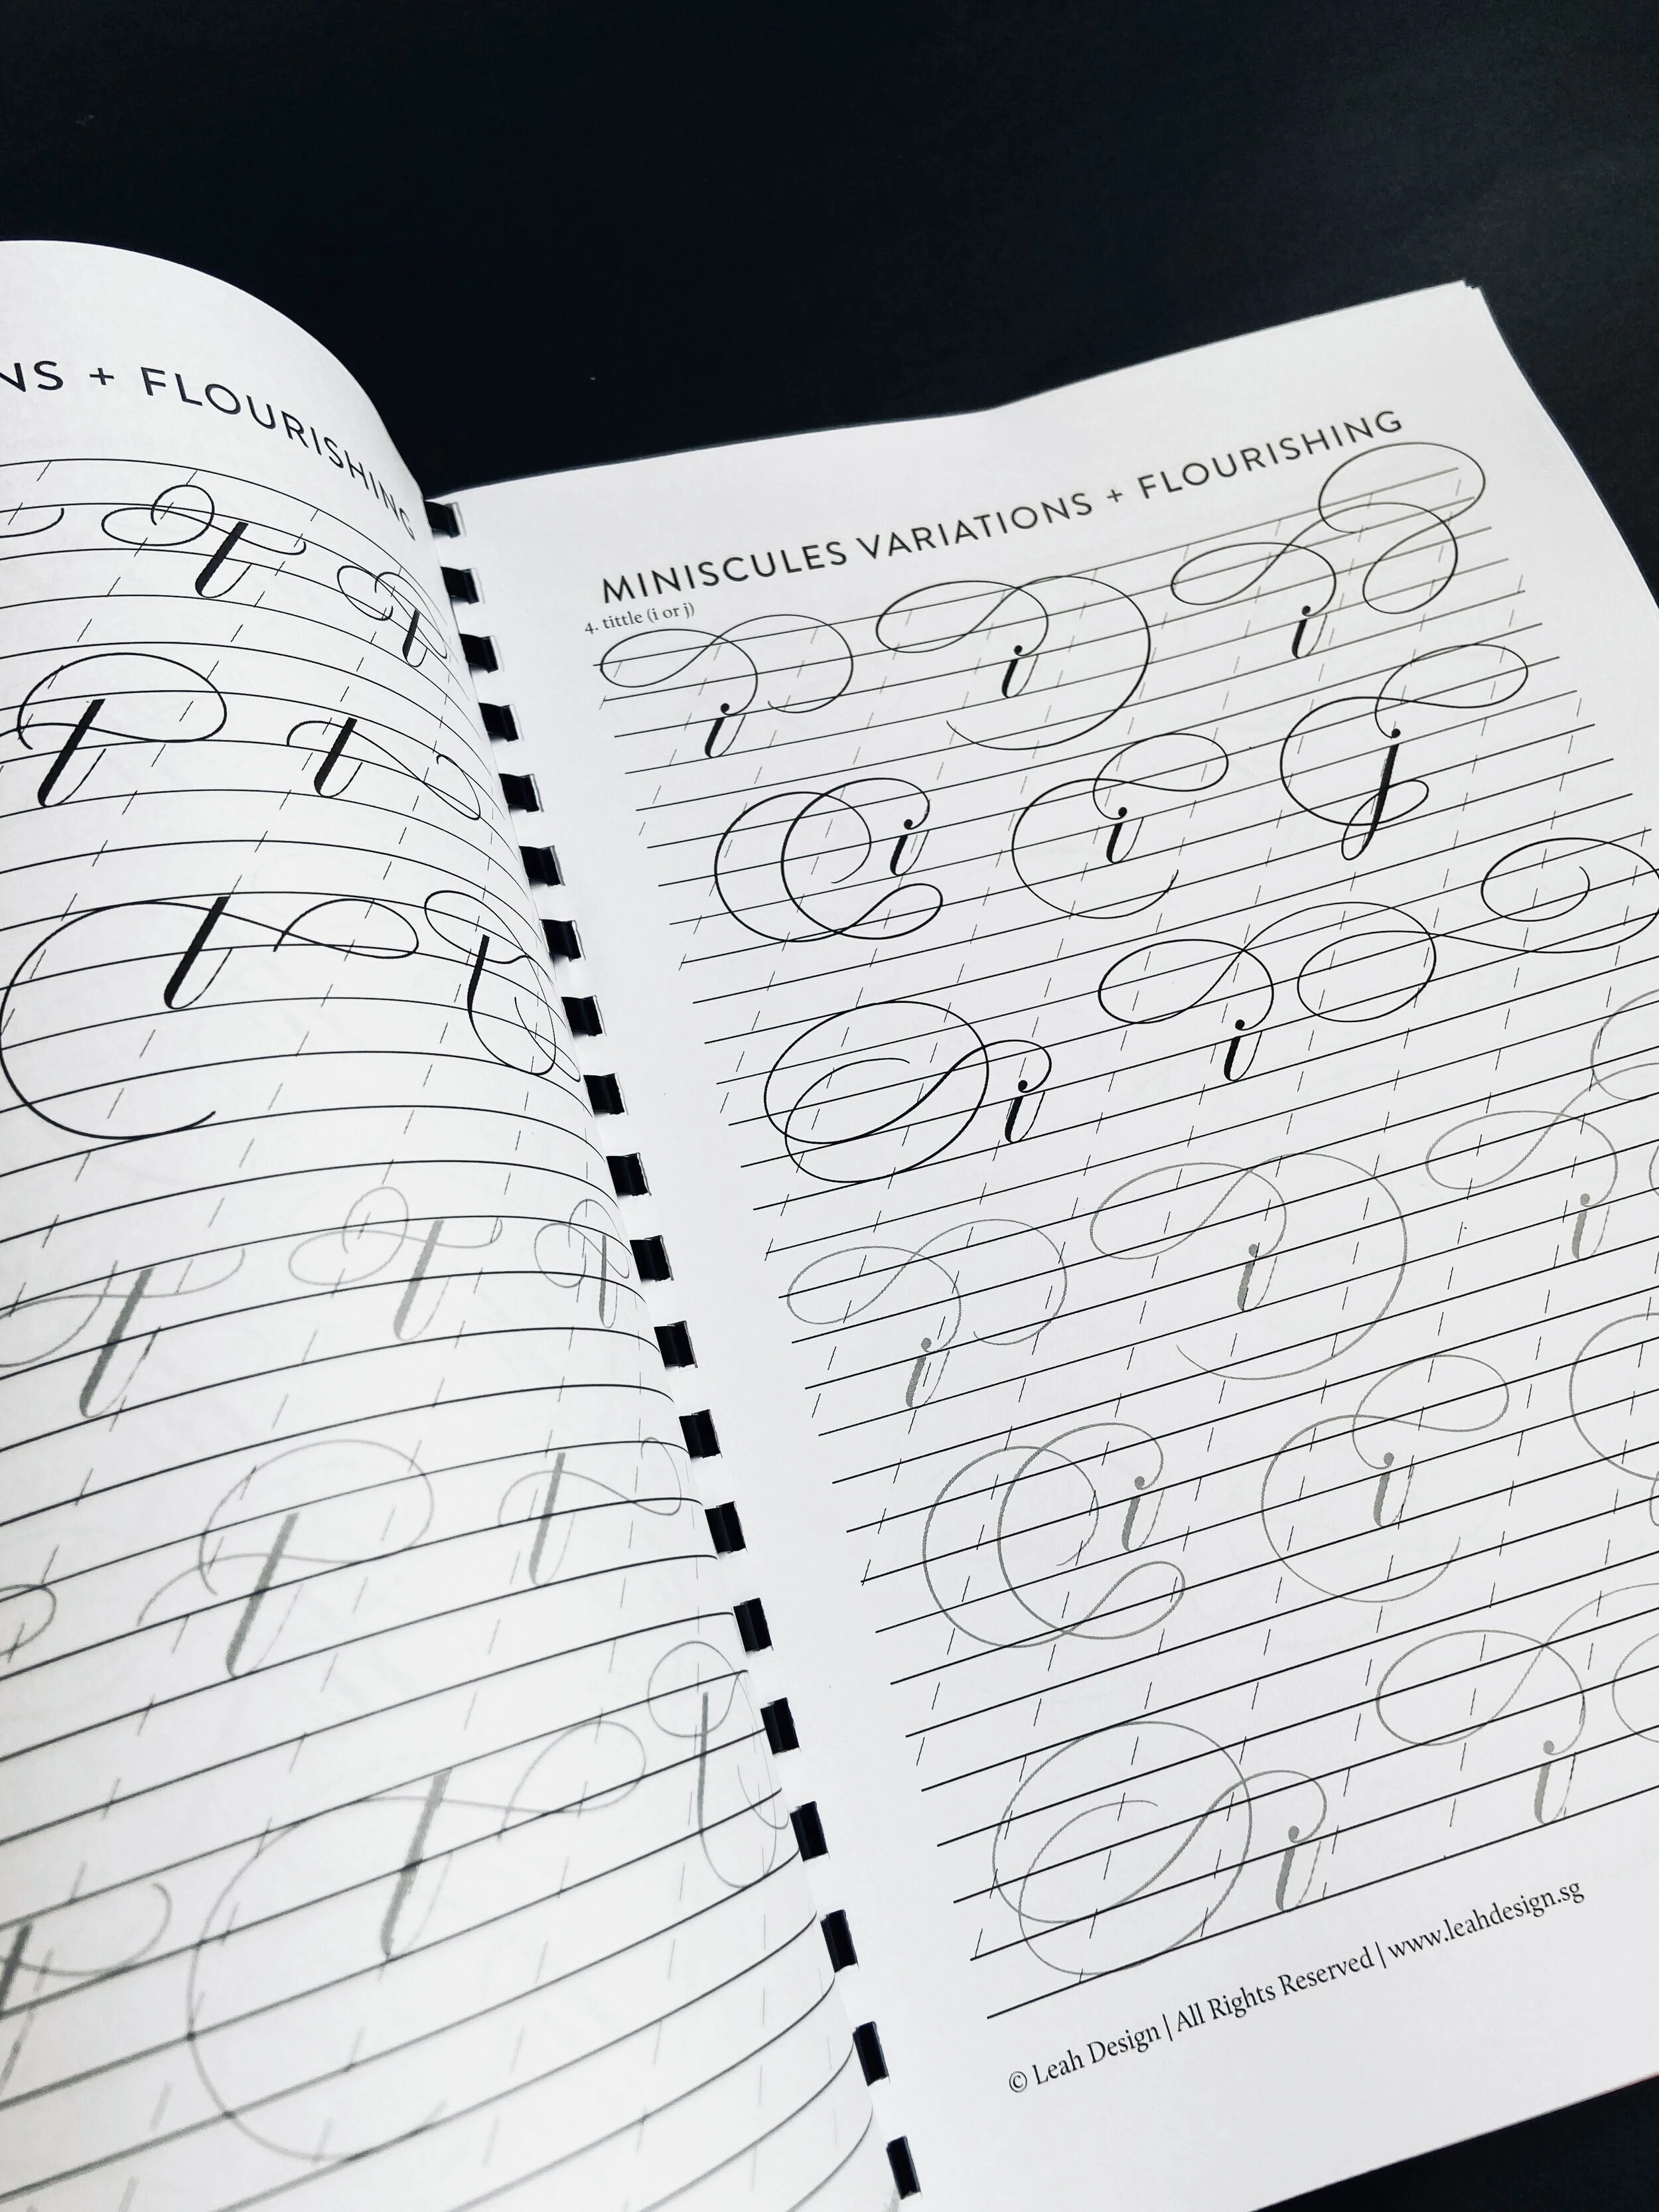 NS + FLOURISHING
t t
t t
t t
t t t
t t
t t
MINISCULES VARIATIONS + FLOURISHING
4. tittle (i or j)
i i i
i i j
i i
i i i
i i
i i
© Leah Design | All Rights Reserved | www.leahdesign.sg